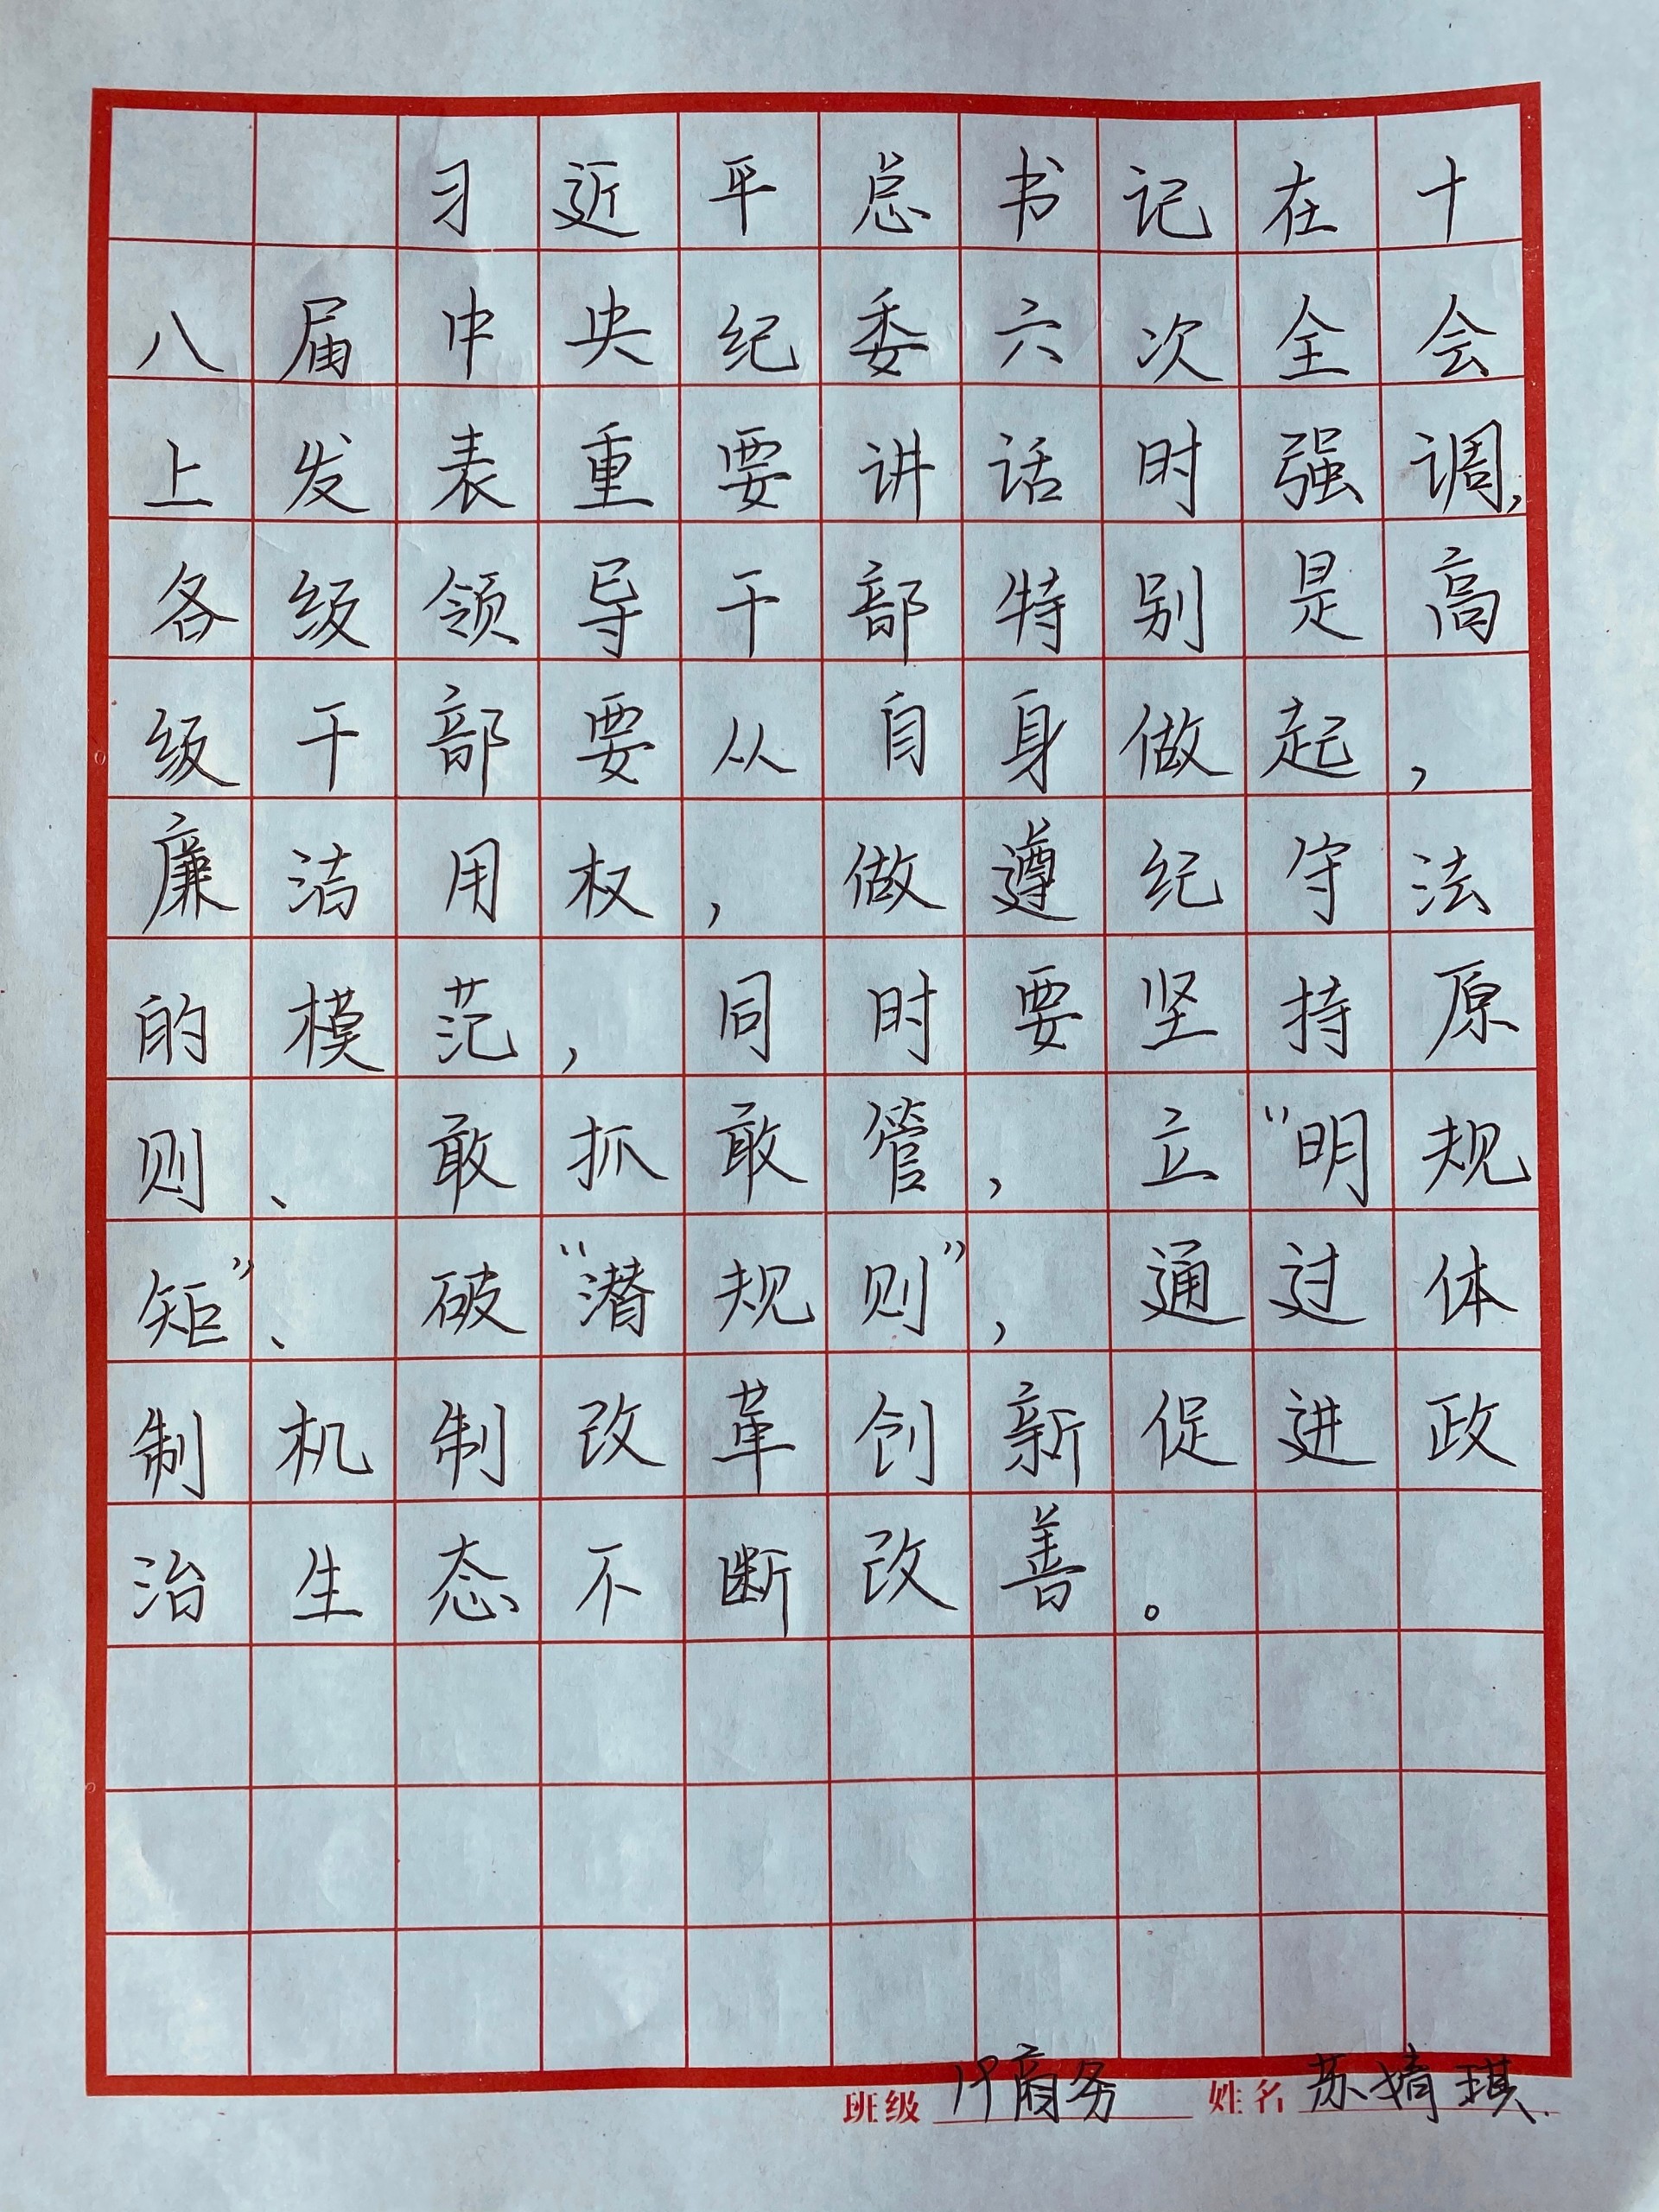 习近平总书记在十
八届中央纪委六次全会
上发表重要讲话时强调，
各级领导干部特别是高
级干部要从自身做起，
廉洁用权，做遵纪守法
的模范，同时要坚持原
则、敢抓敢管，立“明规
矩”、破“潜规则”，通过体
制机制改革创新促进政
治生态不断改善。
班级 19商务 姓名 苏婧琪